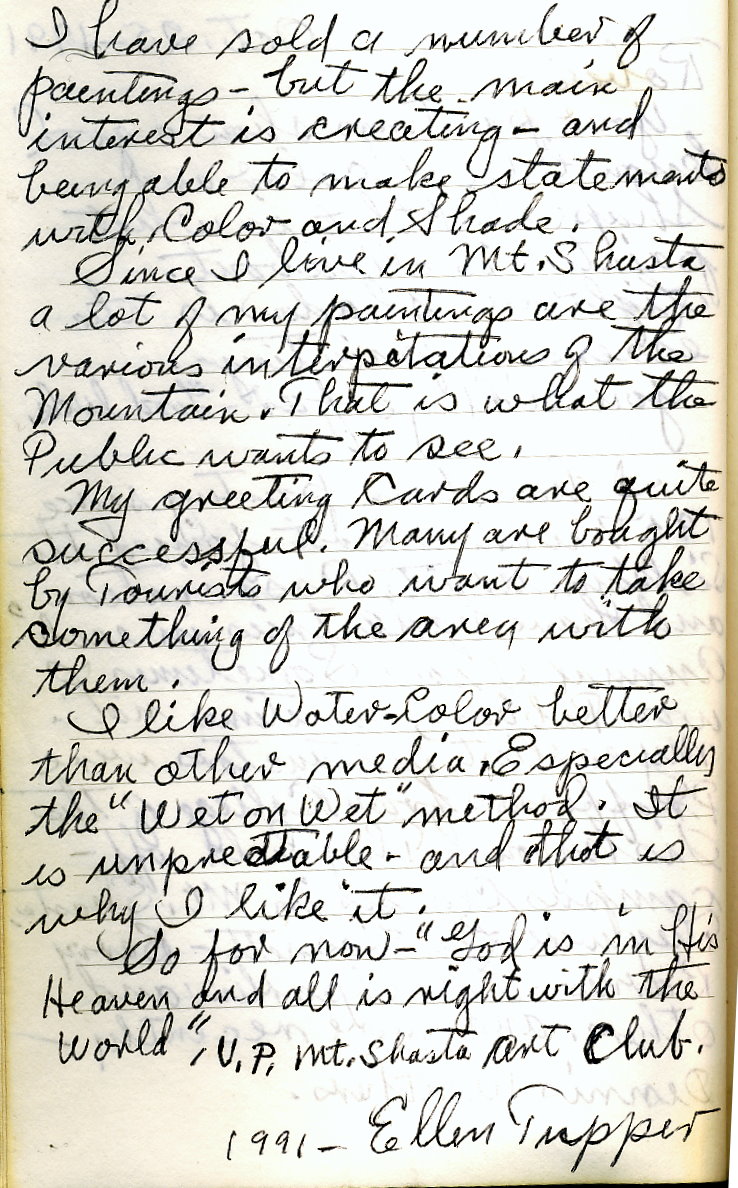 I have sold a number of
paintings - but the main
interest is creating - and
being able to make statements
with Color and Shade.
Since I live in Mt. Shasta
a lot of my paintings are the
various interpitations of the
Mountain. That is what the
Public wants to see.
My greeting Cards are quite
successful. Many are bought
by Tourists who want to take
something of the area with
them.
I like Water-Color better
than other media. Especially
the "Wet on Wet" method. It
is unpredtable - and that is
why I like it.
So for now - "God is in His
Heaven and all is right with the
World". V.P. Mt. Shasta Art Club.
1991 - Ellen Tupper